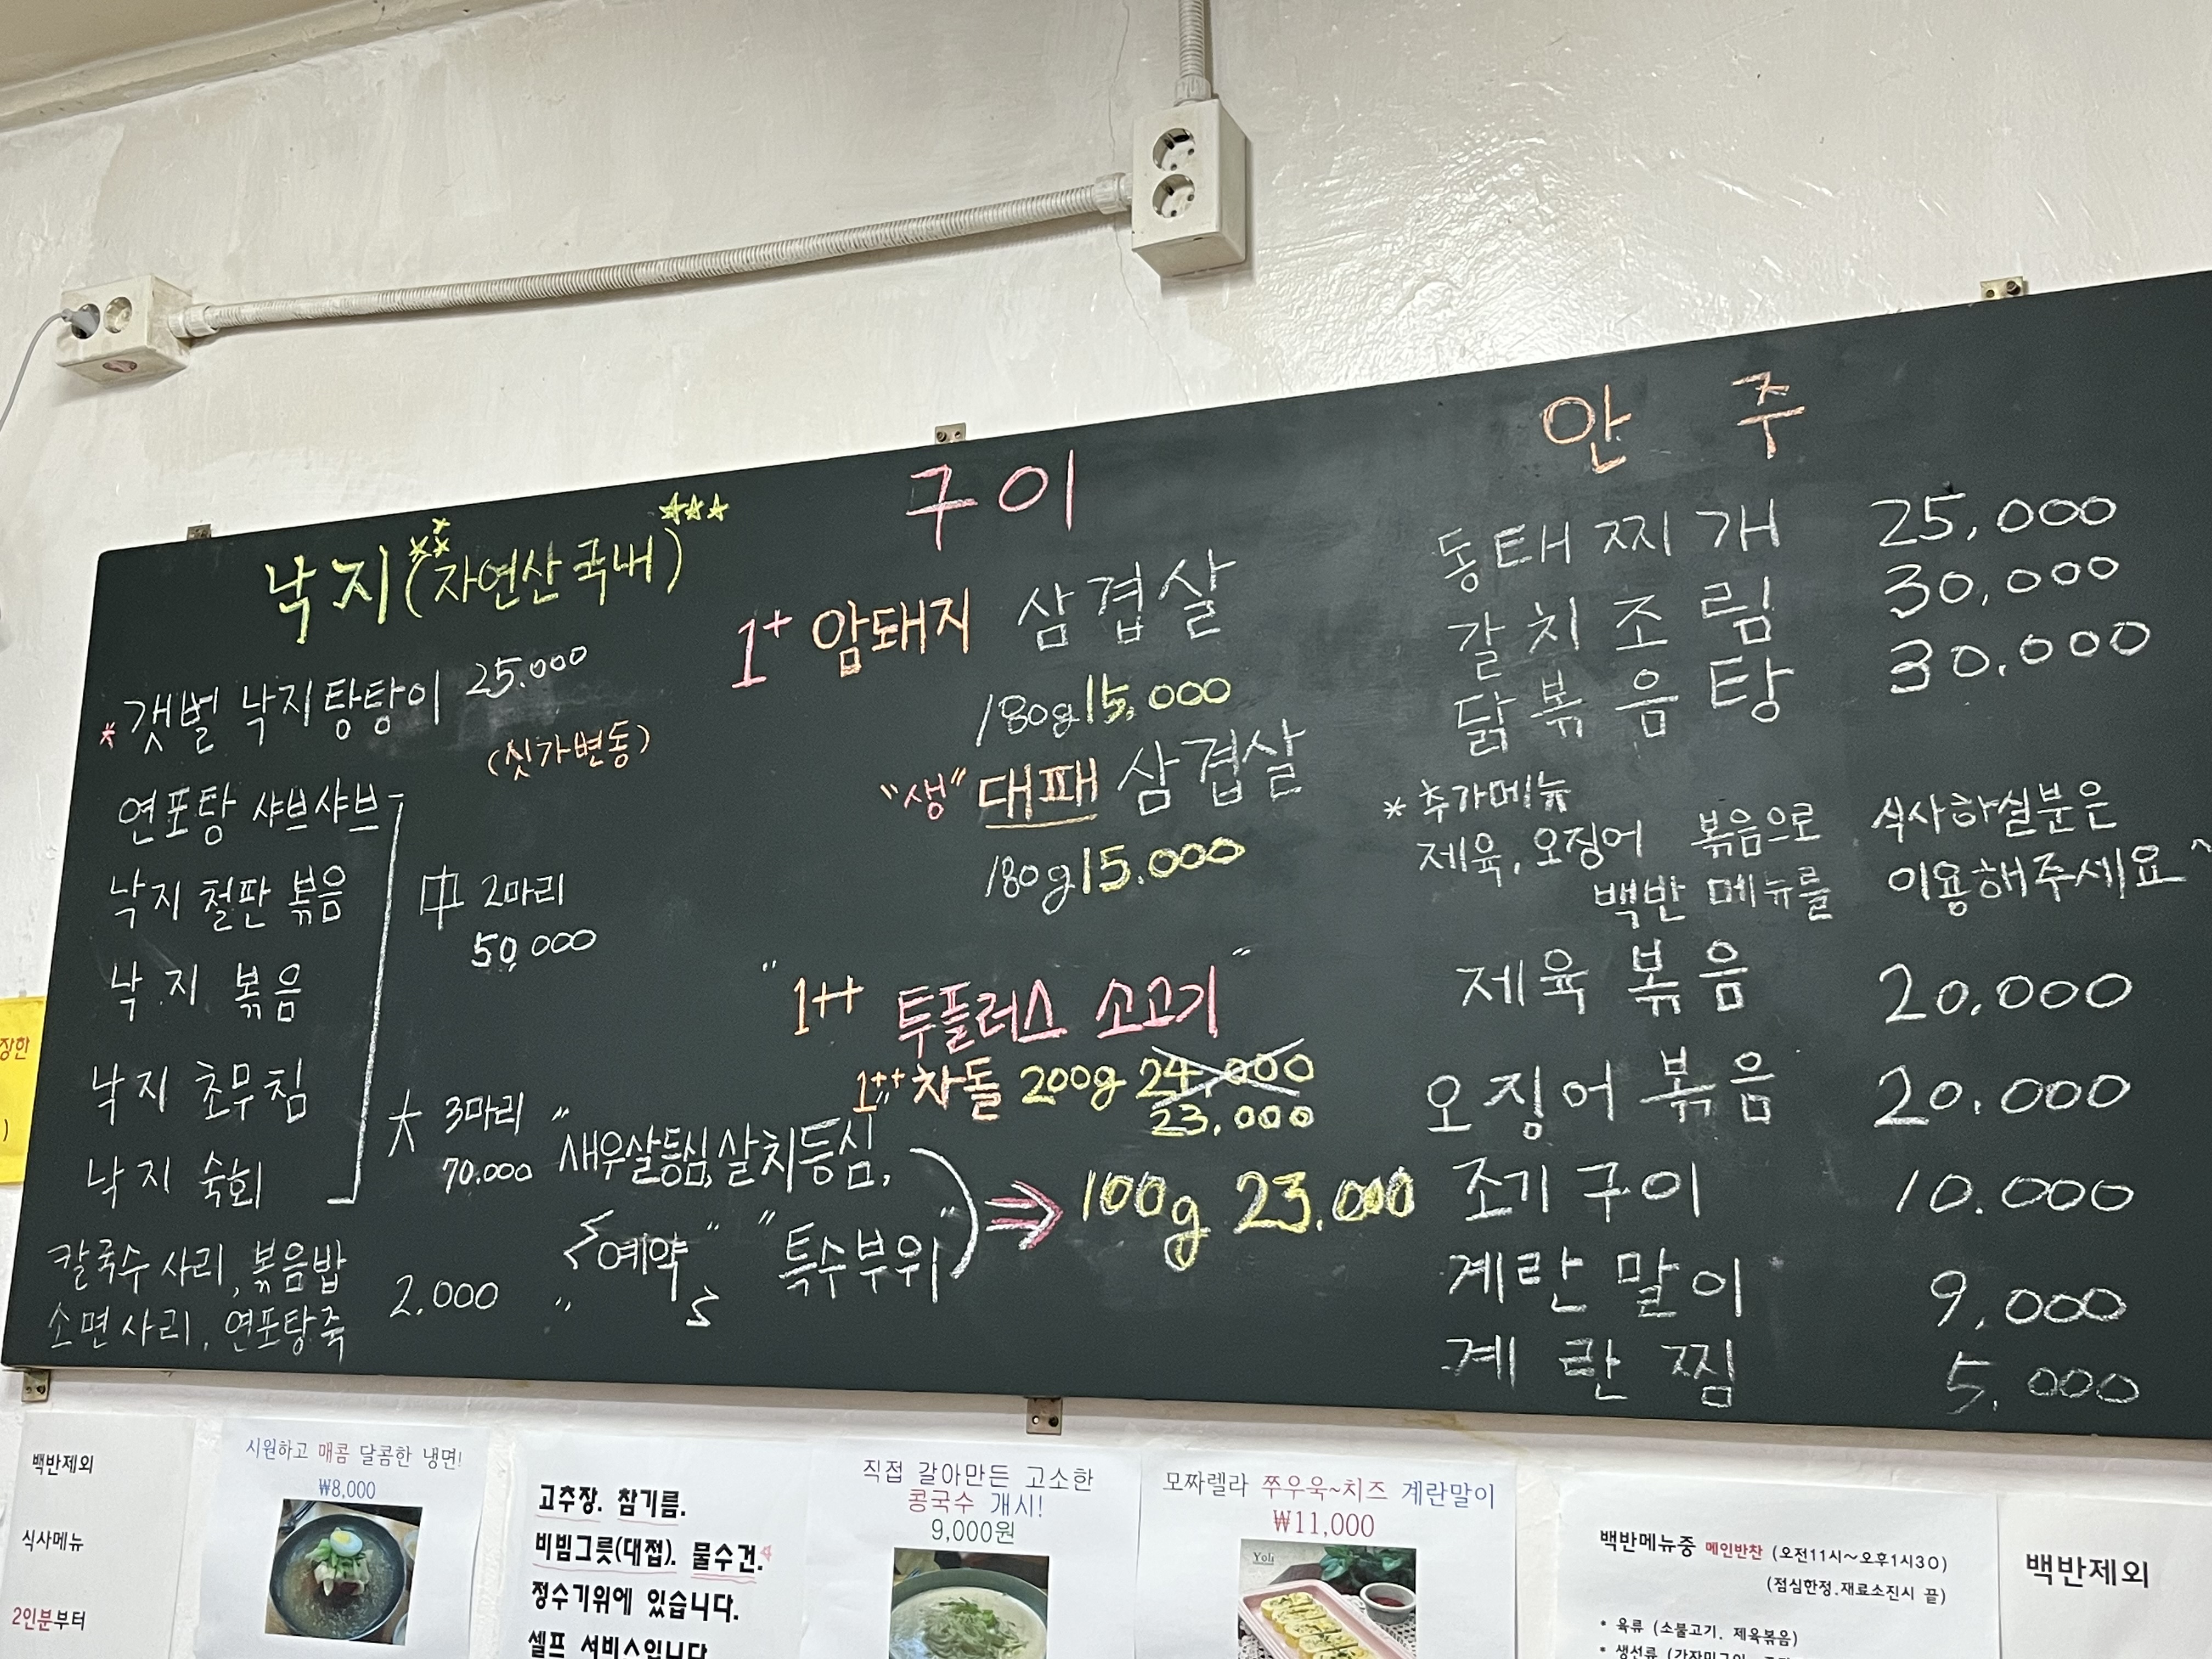 낙지(자연산국내)
* 갯벌 낙지탕탕이 25.000
(싯가변동)
연포탕 샤브샤브
낙지 철판 볶음
中 2마리
50,000
낙지 볶음
낙지 초무침
大 3마리
70.000
낙지 숙회
칼국수 사리, 볶음밥
소면사리, 연포탕죽
2.000
구이
1+ 암돼지 삼겹살
180g 15,000
"생" 대패 삼겹살
180g 15.000
"1++ 투플러스 소고기"
1++ 차돌 200g 24,000
23,000
"새우살등심, 살치등심,
"예약" "특수부위"
⇒ 100g 23.000
안주
동태찌개 25,000
갈치조림 30,000
닭볶음탕 30,000
* 추가메뉴
제육, 오징어 볶음으로 식사하실분은
백반 메뉴를 이용해주세요^
제육 볶음 20,000
오징어 볶음 20.000
조기구이 10.000
계란말이 9,000
계란찜 5,000
장한
)
백반제외
식사메뉴
2인분부터
시원하고 매콤 달콤한 냉면!
₩8,000
고추장. 참기름.
비빔그릇(대접). 물수건.
정수기위에 있습니다.
셀프 서비스입니다
직접 갈아만든 고소한
콩국수 개시!
9,000원
모짜렐라 쭈우욱~치즈 계란말이
₩11,000
Yoli
백반메뉴중 메인반찬 (오전11시~오후1시30)
(점심한정.재료소진시 끝)
* 육류 (소불고기. 제육볶음)
* 생선류
백반제외